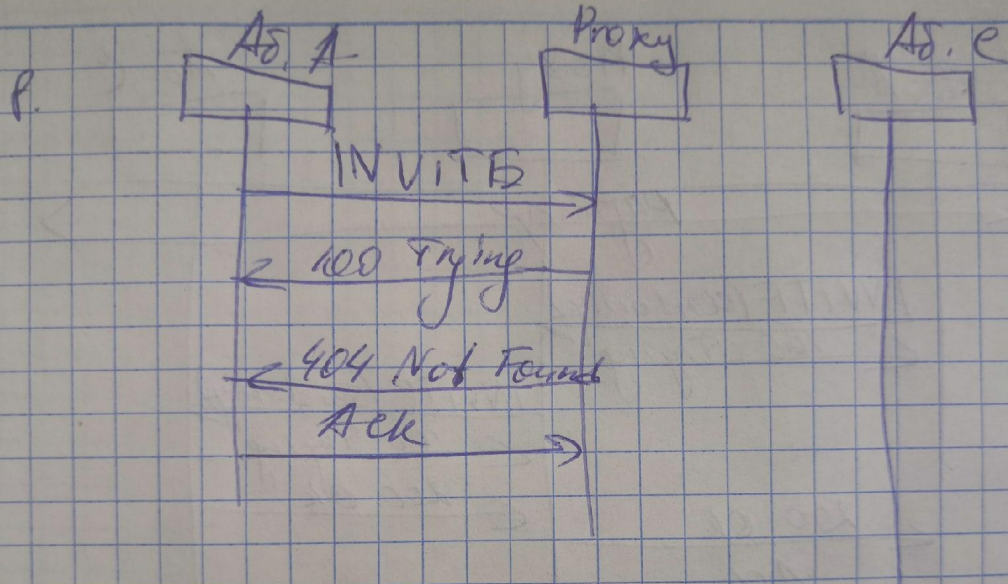 Аб. А Proxy Аб. С
р.
INVITE
100 Trying
404 Not Found
Ack